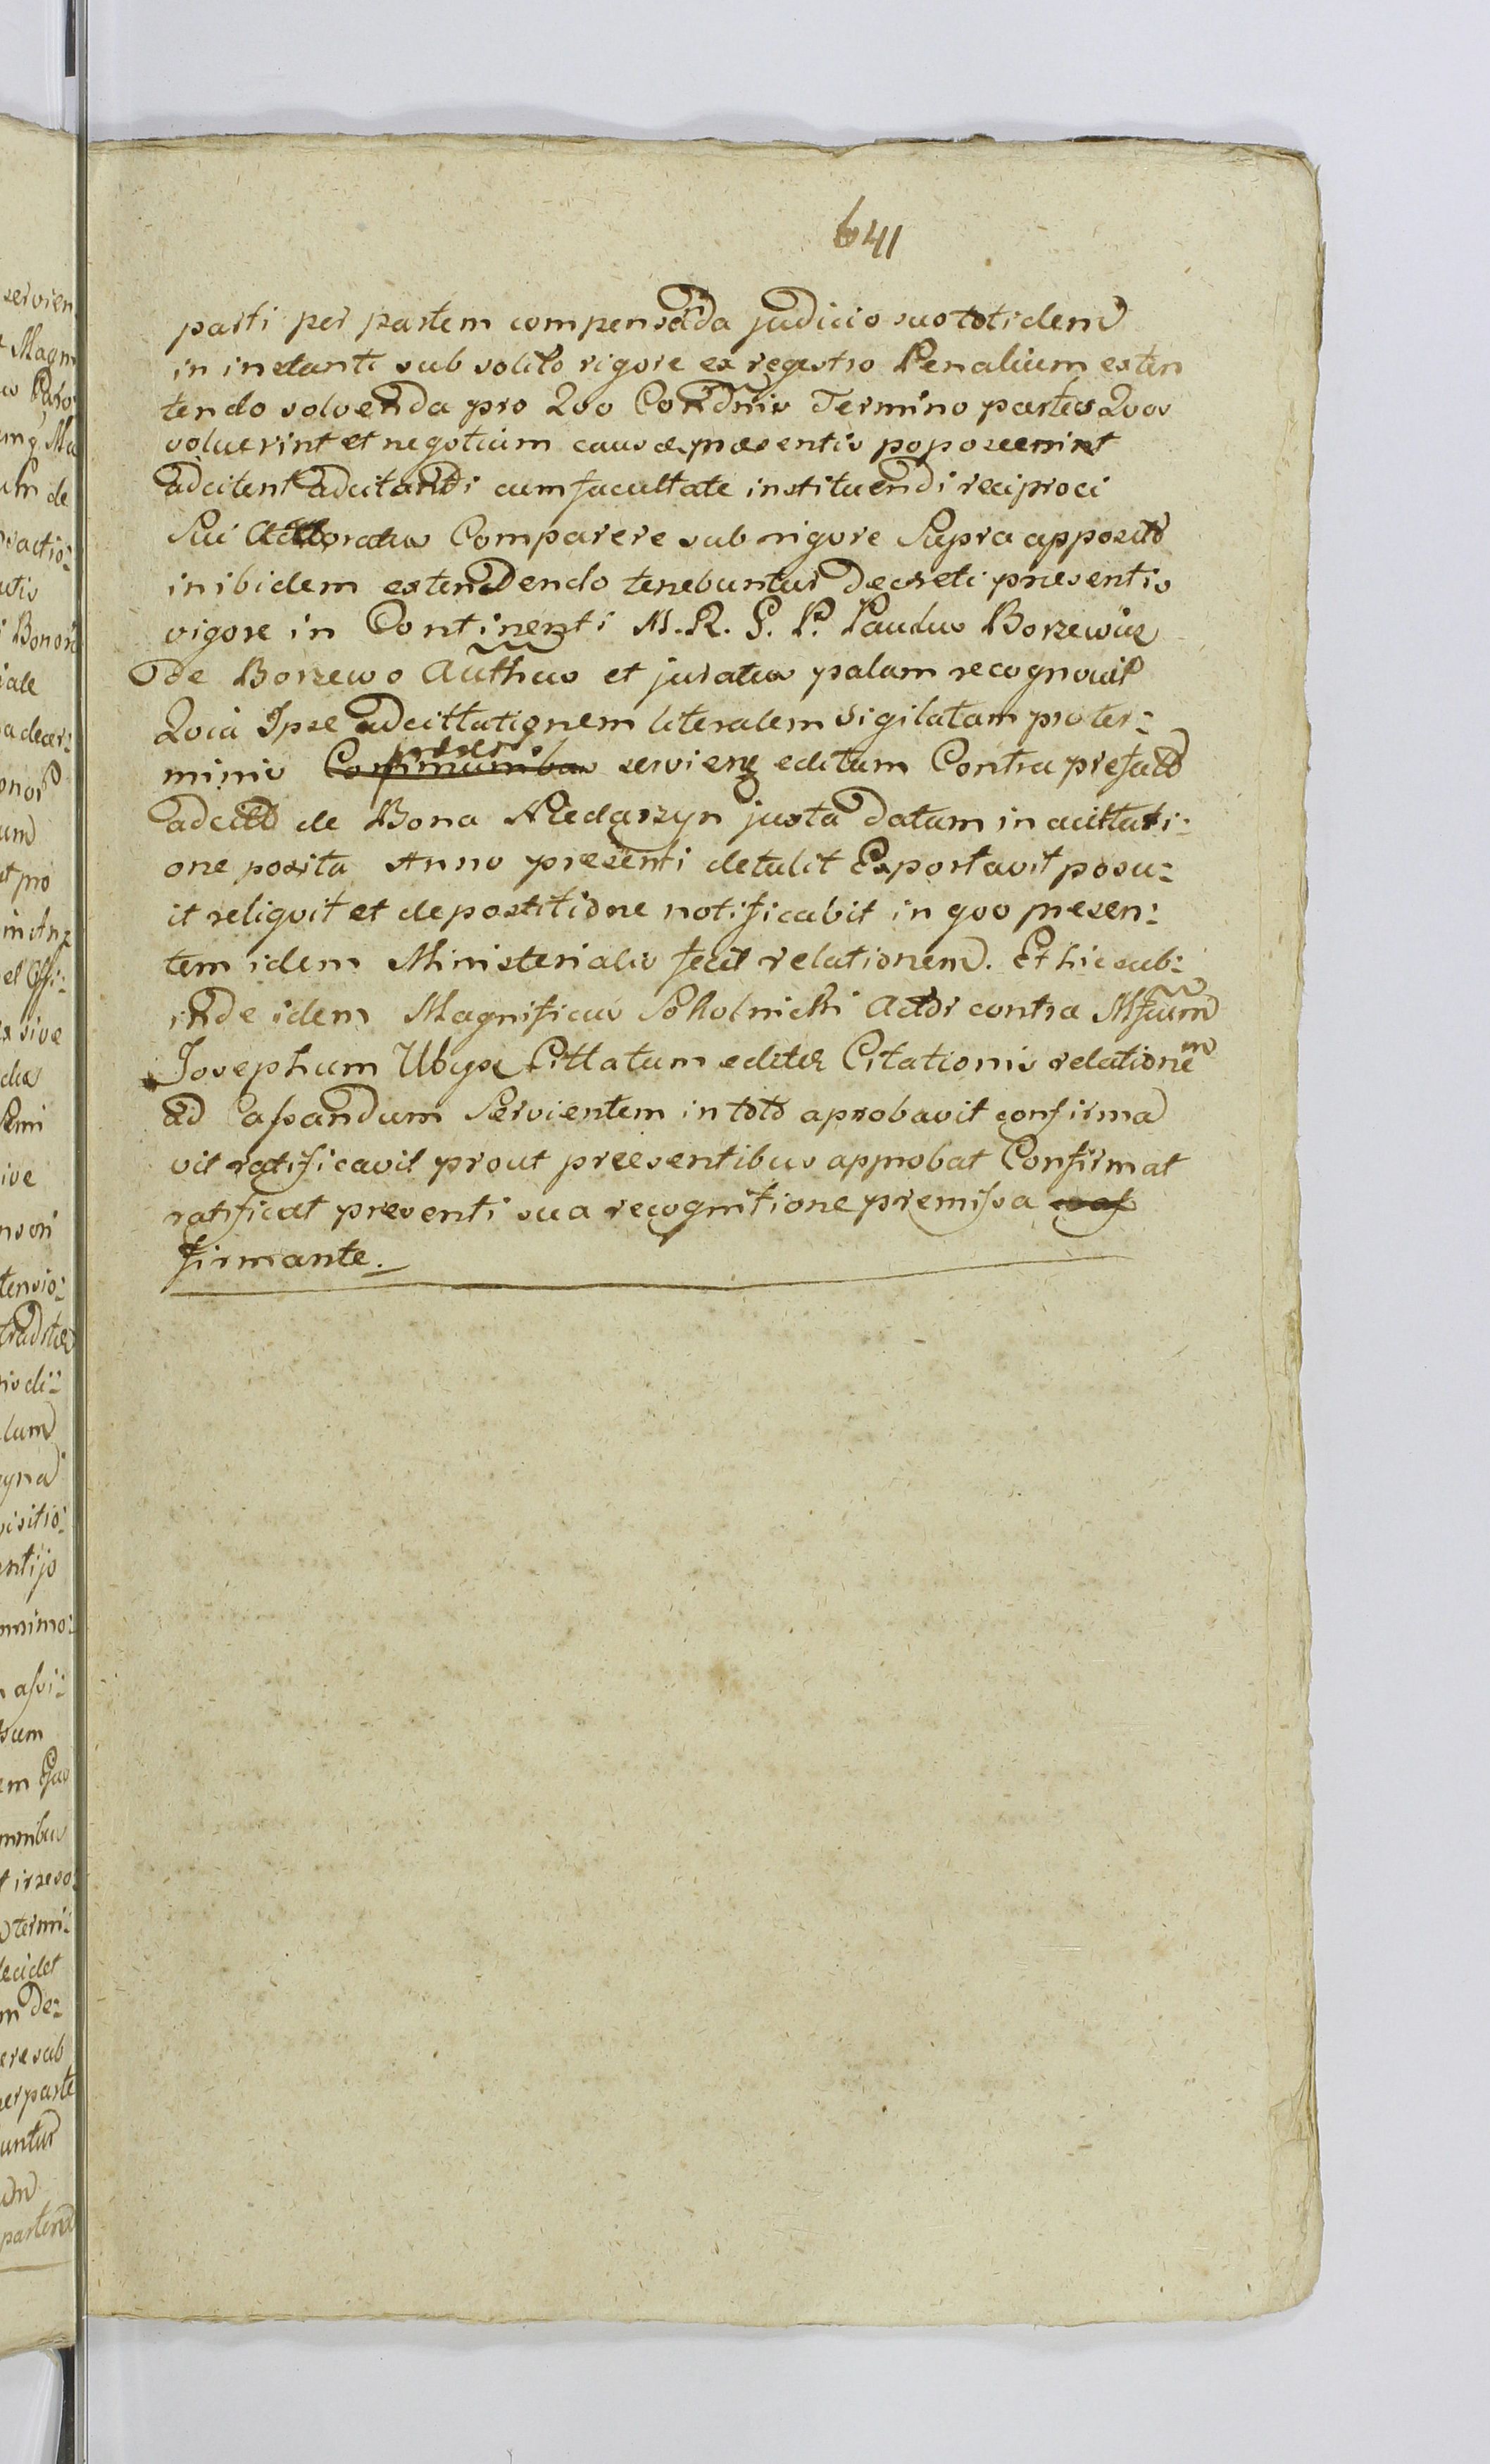 641
parti per partem compensada judicio suo totidem
in instanti sub solito rigore ex regestro Penalium exten
tendo solvenda pro Quo Condnis Termino partes Quos
voluerint et negotium causæ præsentis poposcerint
adcitent adcitandi cum facultate instituendi reciproci
Sui Actoratus Comparere sub rigore Supra apposito
inibidem extendendo tenebuntur Decreti presentis
vigore in Continenti M. R. G. P. Paulus Borzewicz
de Borzewo Authus et juratus palam recognovit
Quia Ipse adcittationem literalem sigilatam pro ter:
minis serviens editam Contra prefato
adcito de Bona Niedarzyn juxta datam in acittati:
one posita Anno presenti detulit Exportavit posu:
it reliquit et depostitione notificabit in quo presen:
tem idem Ministerialis fecit relationem. Et hic sub:
inde idem Magnificus Sokolnicki Actor contra Mfcum
Josephum Ubysz Cittatum editæ Citationis relationem
ad Cassandum Servientem in toto aprobavit confirma
vit ratificavit prout preesentibus approbat Confirmat
ratificat presenti sua recognitione premissa
firmante.
servien
Magn
de
i Bonor
iale
um
et pro
x sive
ive
tensio:
lum
visitio:
sum
mnibus
termi:
decidet
m De:
ere sub
per parte
untur
partem